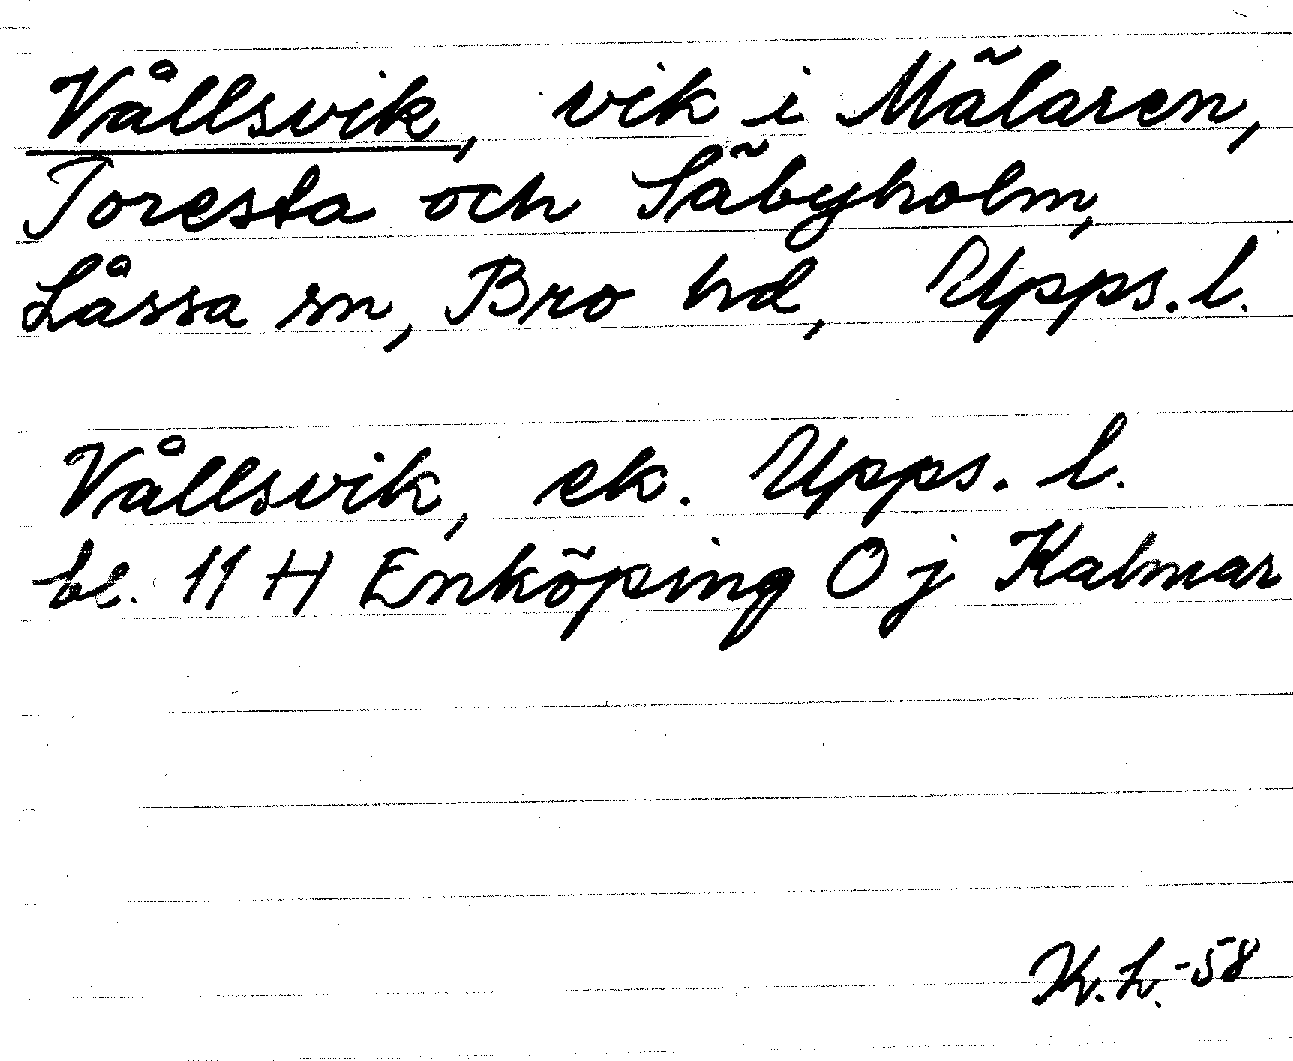 Vållsvik, vik i Mälaren,
Toresta och Säbyholm,
Låssa sn, Bro hd, Upps. l.
Vållsvik, ek. Upps. l.
bl. 11 H Enköping O j Kalmar
K. L. -58